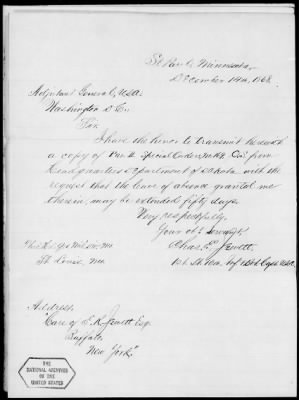 St Paul, Minnesota,
December 14th, 1868.
Adjutant General, U.S.A.
Washington D.C.
Sir
I have the honor to transmit herewith
a copy of Par. Special Orders from
Headquarters Department of Dakota with the
request that the leave of absence granted me
therein, may be extended fifty days.
Very respectfully,
Your obt. Servant
Chas. Jewett
1st Lt.
St. Louis, Mo
Address,
"Care of E. R. Jewett Esq.
Buffalo,
New York"
THE
NATIONAL ARCHIVES
OF THE
UNITED STATES